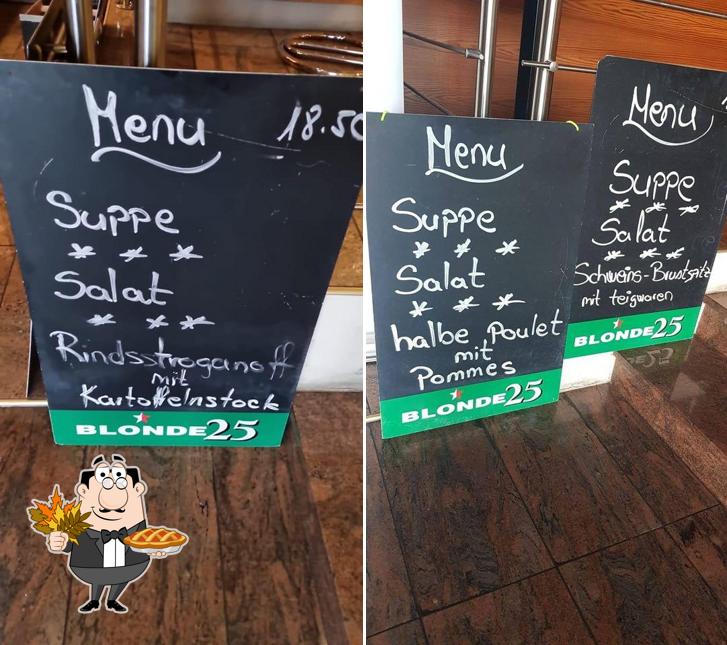 Menu 18.50
Suppe
* * *
Salat
* * *
Rindsstroganoff
mit
Kartoffelnstock
BLONDE 25
Menu
Suppe
* * *
Salat
* * *
halbe Poulet
mit
Pommes
BLONDE 25
Menu
Suppe
* * *
Salat
* * *
Schweins-Brustspitz
mit teigwaren
BLONDE 25